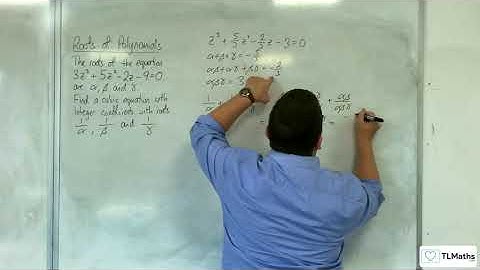 Roots of Polynomials
The roots of the equation
3z³ + 5z² - 2z - 9 = 0
are α, β and γ.
Find a cubic equation with
integer coefficients with roots
1/α, 1/β and 1/γ
z³ + 5/3 z² - 2/3 z - 3 = 0
α + β + γ = -5/3
αβ + αγ + βγ = -2/3
αβγ = 3
1/α +
+ αβ/αβγ
=
=
TLMaths